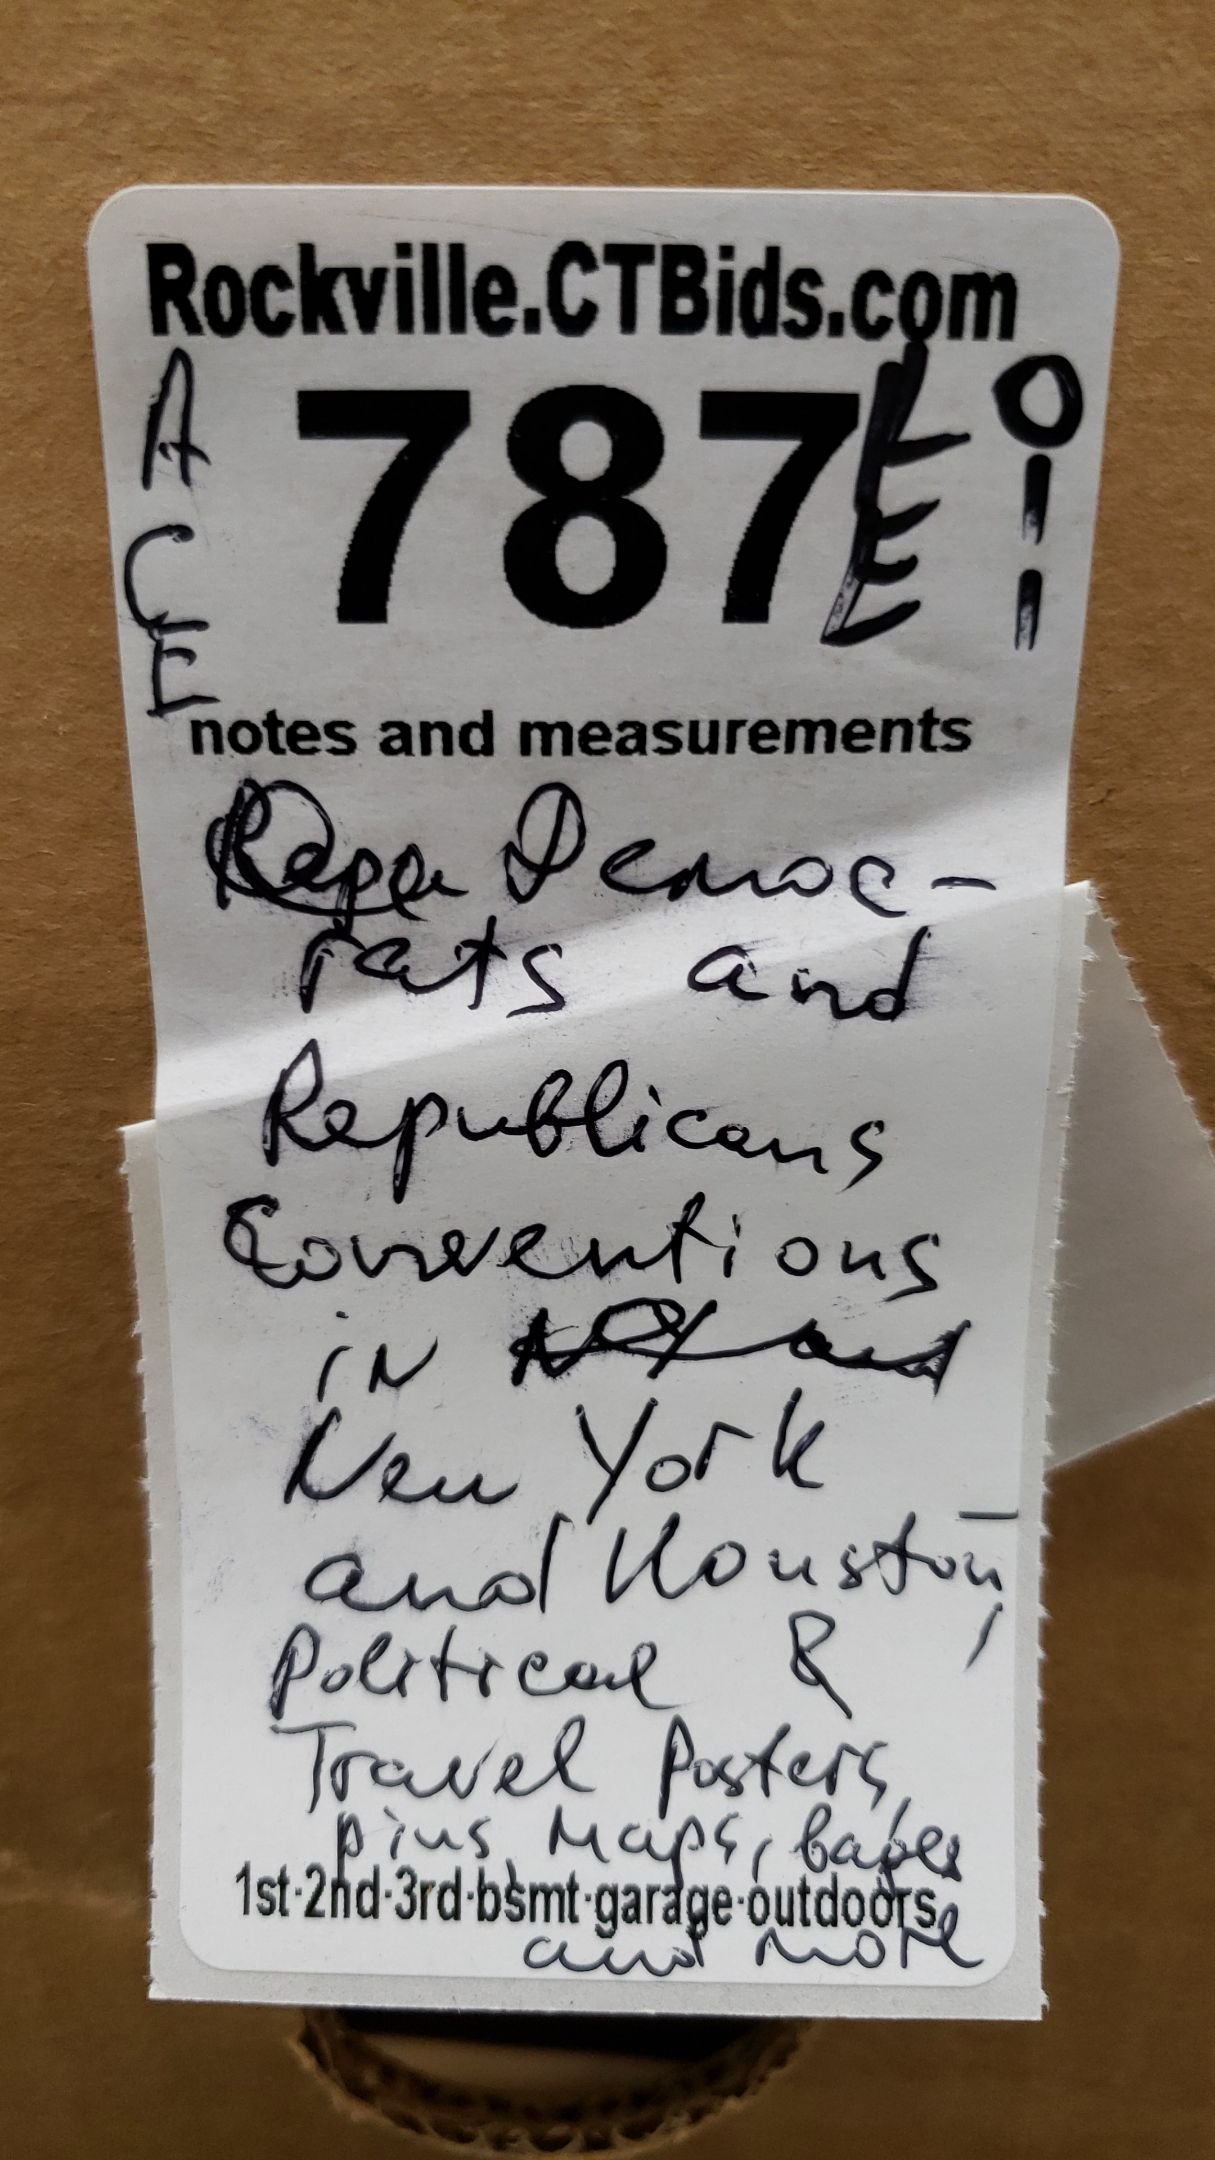 Rockville.CTBids.com
ACE
787
LEE
011
notes and measurements
Democ-
rats and
Republicans
Conventions
in
New York
and Houston,
Political &
Travel Posters,
pins, Maps,
1st·2nd·3rd·bsmt·garage·outdoors
and more